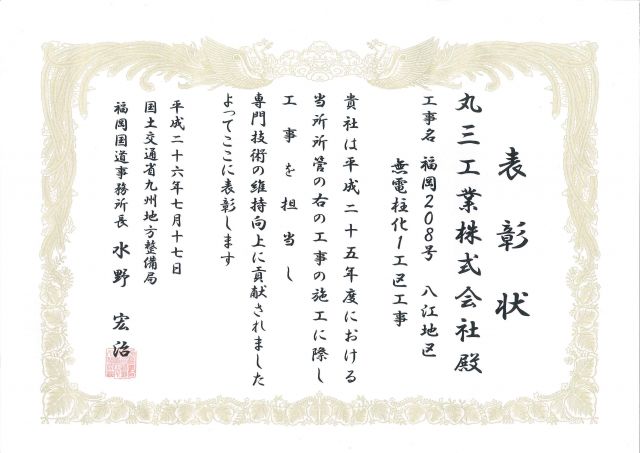 表彰状
丸三工業株式会社殿
工事名 福岡208号 八江地区
無電柱化1工区工事
貴社は平成二十五年度における
当所所管の右の工事の施工に際し
工事を担当し
専門技術の維持向上に貢献されました
よってここに表彰します
平成二十六年七月十七日
国土交通省九州地方整備局
福岡国道事務所長 水野 宏治